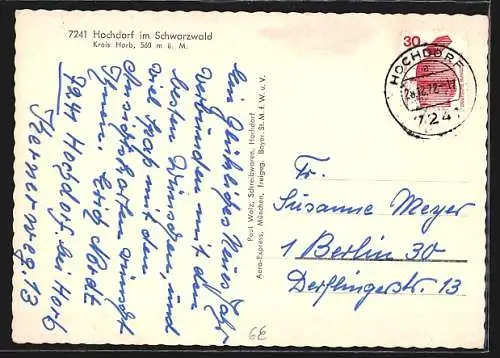 7241 Hochdorf im Schwarzwald
Kreis Horb, 560 m ü. M.
Ein Glückliches Neues Jahr
verbunden mit den
besten Wünschen, und
viel Spaß mit den
Ansichtskarten wünscht
Ihnen. Erig
7241 Hochdorf. Krs Horb
Kernerweg. 13
Paul Walz, Schreibwaren, Hochdorf
Aero-Express, München, freigeg. Bayer. St. M. f. W. u. V.
30
HOCHDORF
28.12.72-17
7241
Fr.
Susanne Meyer
1 Berlin 30
Derflingerstr. 13
6E